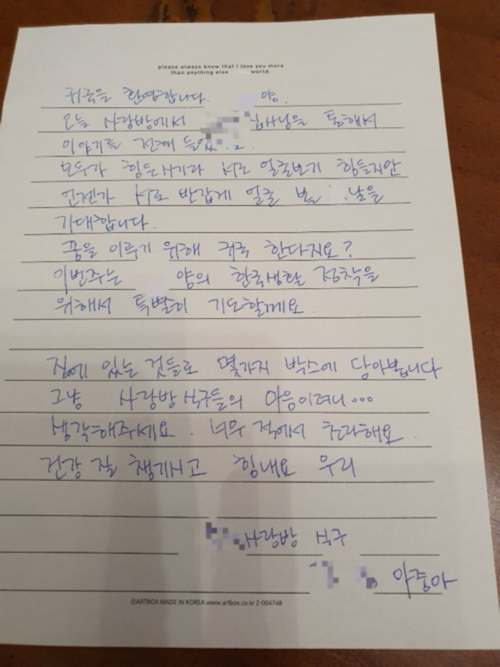 please always know that I love you more
than anything else world.
귀국을 환영합니다. 양.
오늘 사랑방에서 집사님을 통해서
이야기를 전해 들었
모두가 힘든시기라 서로 얼굴보기 힘들지만
언젠가 서로 반갑게 얼굴 볼 날을
기대합니다.
꿈을 이루기 위해 귀국 한다지요?
이번주는 양의 한국생활 정착을
위해서 특별히 기도할게요
집에 있는 것들로 몇가지 박스에 담아봅니다
그냥 사랑방 식구들의 마음이려니...
생각해주세요. 너무 적어서 초라해요
건강 잘 챙기시고 힘내요 우리
사랑방 식구
ⓒARTBOX MADE IN KOREA www.artbox.co.kr 2-004748